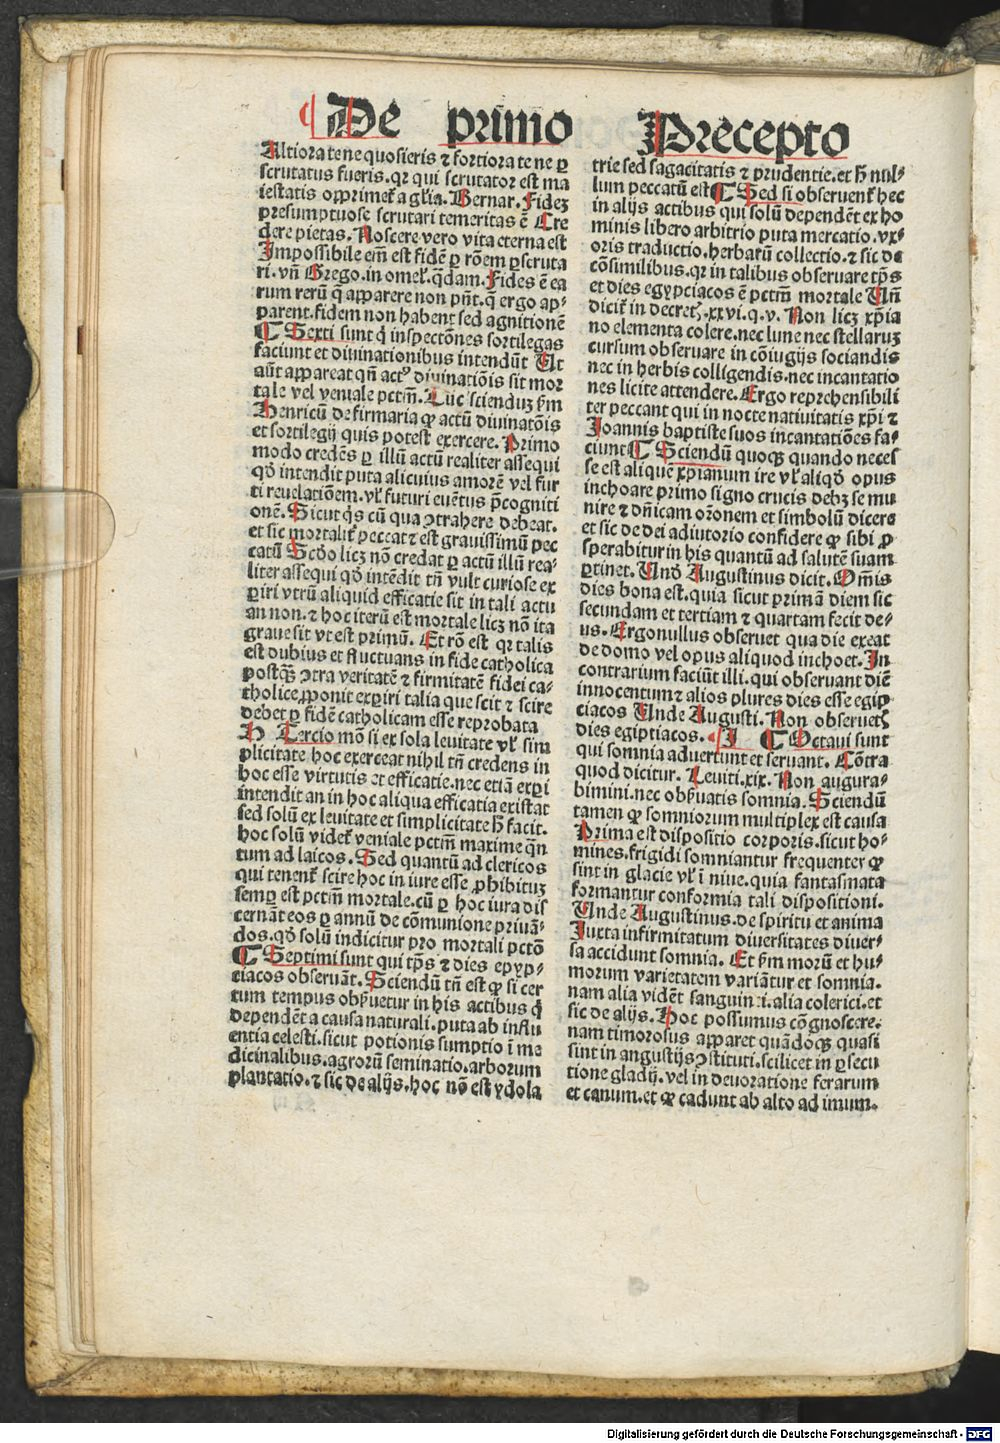 De primo Precepto
Altiora te ne quosieris ⁊ fortiora te ne ꝑ
scrutatus fueris. qꝛ qui scrutator est ma
iestatis opprimet᷒ a gl̄ia. Bernar. Fideꝫ
presumptuose scrutari temeritas ē Cre
dere pietas. Noscere vero vita eterna est
Impossibile em̄ est fidē ꝑ rōem ꝑscruta
ri. vn̄ Grego. in omel᷒. q̄dam. Fides ē ea
rum rerū q̄ apparere non pn̄t. q̄ ergo ap⸗
parent. fidem non habent sed agnitionē
¶ Sexti sunt q̇ inspectōnes sortilegas
faciunt et diuinationibus intendūt Ut
aūt appareat qn̄ actꝰ diuinatiōis sit mor
tale vel veniale pctm̄. Tūc scienduꝫ ẜm
Henricū de firmaria ꝙ actū diuinatōis
et sortilegij quis potest exercere. Primo
modo credēs ꝑ illū actū realiter assequi
qd̄ intendit puta alicuius amorē vel fur
ti reuelatiōem. vl᷒ futuri euētus p̄cogniti
onē. Sicut q̇s cū qua ↄtrahere debeat.
et sic mortalit᷒ peccat ⁊ est grauissimū pec
catū Scd̄o licꝫ nō credat ꝑ actū illū rea⸗
liter assequi qd̄ intēdit tn̄ vult curiose ex
ꝑiri vtrū aliquid efficatie sit in tali actu
an non. ⁊ hoc iterū est mortale licꝫ nō ita
graue sit vt est primū. Et rō est qꝛ talis
est dubius et fluctuans in fide catholica
postq̄ꝫ ↄtra veritatē ⁊ firmitatē fidei ca⸗
tholice ꝓponit exꝑiri talia que scit ⁊ scire
debet ꝑ fidē catholicam esse reprobata
H Tercio mō si ex sola leuitate vl᷒ sim
plicitate hoc exerceat nihil tn̄ credens in
hoc esse virtutis et efficatie. nec etiā exꝑi
intendit an in hoc aliqua efficatia existat
sed solū ex leuitate et simplicitate h̄ facit.
hoc solū videt᷒ veniale pctm̄ maxime q̄n
tum ad laicos. Sed quantū ad clericos
qui tenent᷒ scire hoc in iure esse ꝓhibituꝫ
semꝑ est pctm̄ mortale. cū ꝑ hoc iura dis
cernāt eos ꝑ annū de cōmunione priuā⸗
dos. qd̄ solū indicitur pro mortali pctō
¶ Septimi sunt qui tp̄s ⁊ dies egyp⸗
ciacos obseruāt. Sciendū tn̄ est ꝙ si cer
tum tempus obẜuetur in his actibus q̇
dependēt a causa naturali. puta ab influ
entia celesti. sicut potionis sumptio ī me
dicinalibus. agrorū seminatio. arborum
plantatio. ⁊ sic de alijs. hoc nō est ydola
trie sed sagacitatis ⁊ prudentie. et h̄ nul⸗
lum peccatū est ¶ Sed si obseruent᷒ hec
in alijs actibus qui solū dependēt ex ho
minis libero arbitrio puta mercatio. vx⸗
oris traductio. herbarū collectio. ⁊ sic de
cōsimilibus. qꝛ in talibus obseruare tp̄s
et dies egypciacos ē pctm̄ mortale Un̄
dicit᷒ in decret̄. xxvi. q. v. Non licꝫ xp̄ia
no elementa colere. nec lune nec stellaruꝫ
cursum obseruare in cōiugijs sociandis
nec in herbis colligendis. nec incantatio
nes licite attendere. Ergo reprehensibili
ter peccant qui in nocte natiuitatis xp̄i ⁊
Joannis baptiste suos incantatiōes fa⸗
ciunt ¶ Sciendū quoqꝫ quando neces
se est aliquē xp̄ianum ire vl᷒ aliqd̄ opus
inchoare primo signo crucis debꝫ se mu
nire ⁊ dn̄icam or̄onem et simbolū dicere
et sic de dei adiutorio confidere ꝙ sibi ꝓ
sperabitur in his quantū ad salutē suam
ꝑtinet. Und̄ Augustinus dicit. Om̄is
dies bona est. quia sicut primā diem sic
secundam et tertiam ⁊ quartam fecit de⸗
us. Ergo nullus obseruet qua die exeat
de domo vel opus aliquod inchoet. In
contrarium faciūt illi. qui obseruant diē
innocentum ⁊ alios plures dies esse egip
ciacos Unde Augusti. Non obserueꝭ
dies egiptiacos. I ¶ Octaui sunt
qui somnia aduertunt et seruant. Cōtra
quod dicitur. Leuiti. xix. Non augura⸗
bimini. nec obẜuatis somnia. Sciendū
tamen ꝙ somniorum multiplex est causa
Prima est dispositio corporis. sicut ho⸗
mines. frigidi somniantur frequenter ꝙ
sint in glacie vl᷒ ī niue. quia fantasmata
formantur conformia tali dispositioni.
Unde Augustinus. de spiritu et anima
Juxta infirmitatum diuersitates diuer⸗
sa accidunt somnia. Et ẜm morū et hu⸗
morum varietatem variātur et somnia.
nam alia vidēt sanguinei. alia colerici. et
sic de alijs. Hoc possumus cōgnoscere.
nam timorosus apparet quādoqꝫ quasi
sint in angustijs ↄstituti. scilicet in ꝑsecu
tione gladij. vel in deuoratione ferarum
et canum. et ꝙ cadunt ab alto ad imum.
Digitalisierung gefördert durch die Deutsche Forschungsgemeinschaft - DFG